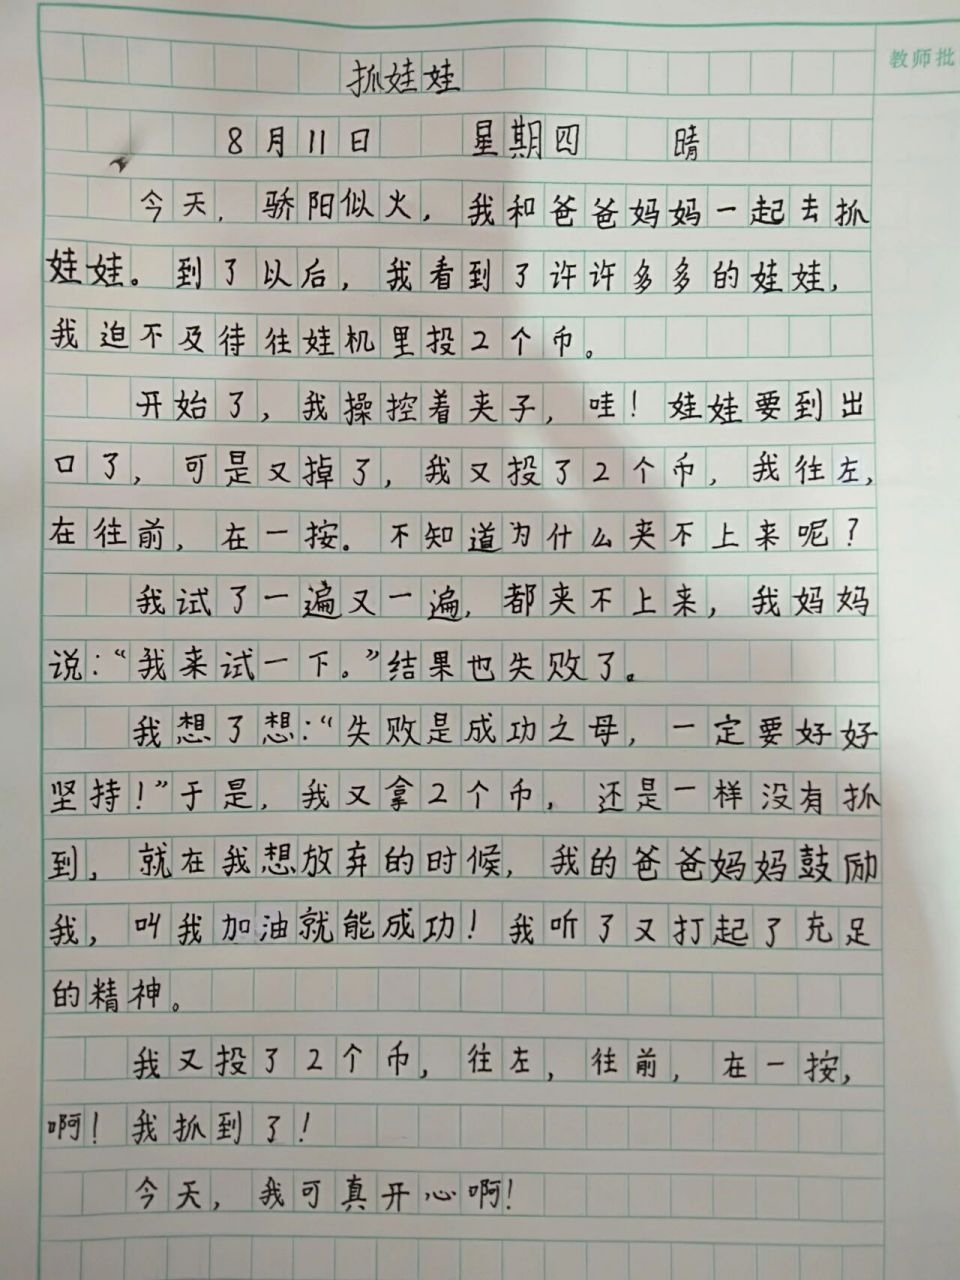 教师批
抓娃娃
8月11日 星期四 晴
今天，骄阳似火，我和爸爸妈妈一起去抓
娃娃。到了以后，我看到了许许多多的娃娃，
我迫不及待往娃机里投2个币。
开始了，我操控着夹子，哇！娃娃要到出
口了，可是又掉了，我又投了2个币，我往左，
在往前，在一按。不知道为什么夹不上来呢？
我试了一遍又一遍，都夹不上来，我妈妈
说：“我来试一下。”结果也失败了。
我想了想：“失败是成功之母，一定要好好
坚持！”于是，我又拿2个币，还是一样没有抓
到，就在我想放弃的时候，我的爸爸妈妈鼓励
我，叫我加油就能成功！我听了又打起了充足
的精神。
我又投了2个币，往左，往前，在一按，
啊！我抓到了！
今天，我可真开心啊！